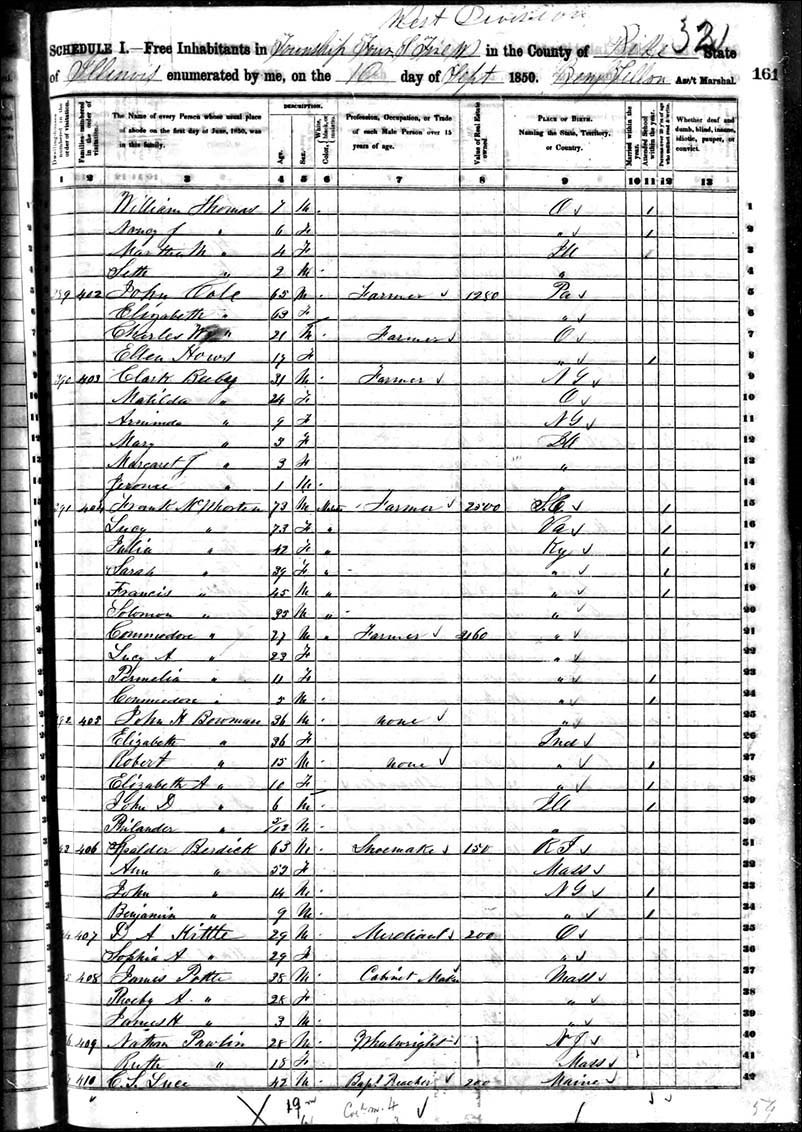 West Division
SCHEDULE I.—Free Inhabitants in Township Four S Five W in the County of Pike State 321
of Illinois enumerated by me, on the 10 day of Sept 1850. Ass't Marshal. 161
Dwelling-houses numbered in the order of visitation.
Families numbered in the order of visitation.
The Name of every Person whose usual place of abode on the first day of June, 1850, was in this family.
DESCRIPTION.
Age.
Sex.
Color, White, black, or mulatto.
Profession, Occupation, or Trade of each Male Person over 15 years of age.
Value of Real Estate owned
PLACE OF BIRTH. Naming the State, Territory, or Country.
Married within the year.
Attended School within the year.
Whether deaf and dumb, blind, insane, idiotic, pauper, or convict.
1 2 3 4 5 6 7 8 9 10 11 12 13
William Thomas 7 M O 1 1
Nancy J " 6 F " 1 2
Martha M " 4 F Ill 3
Seth " 2 M " 4
402 John Cole 65 M Farmer 1280 Pa 5
Elizabeth " 63 F " 6
Charles W " 21 M Farmer O 7
Ellen 19 F " 1 8
390 403 Clark 31 M Farmer 9
Matilda " 24 F O 10
" 9 F 11
Mary " 3 F Ill 12
Margaret J " 3 F " 13
Jerome " 1 M 14
391 404 Frank McWhorter 73 M Farmer 2500 S.C. 1 15
Lucy " 73 F " Va 1 16
Julia " 42 F " Ky 1 17
Sarah " 39 F " " 1 18
Francis " 45 M " " 1 19
Solomon " 35 M " " 20
Commodore " 27 M " Farmer " 21
Lucy A " 23 F " 22
Permelia " 11 F " 1 23
Commodore " 3 M " 1 24
405 John H Bowman 36 M none " 25
Elizabeth " 36 F Ind 26
Robert " 15 M none " 1 27
Elizabeth A " 10 F " 1 28
John D " 6 M Ill 1 29
Philander " M " 30
406 Berdick 63 M Shoemaker 150 R I 31
Ann " 53 F Mass 32
John " 14 M 1 33
Benjamin " 9 M " 1 34
407 D A Kittle 29 M Merchant 200 O 35
Sophia A " 29 F " 36
408 James Potter 28 M Cabinet Maker Mass 37
Phoeby A. " 28 F " 38
James H " 3 M " 39
409 Nathan Pawlin 28 M Whelwright 40
Ruth " 18 F Mass 41
410 C. S. Luce 42 M Bapt Preacher 200 Maine 42